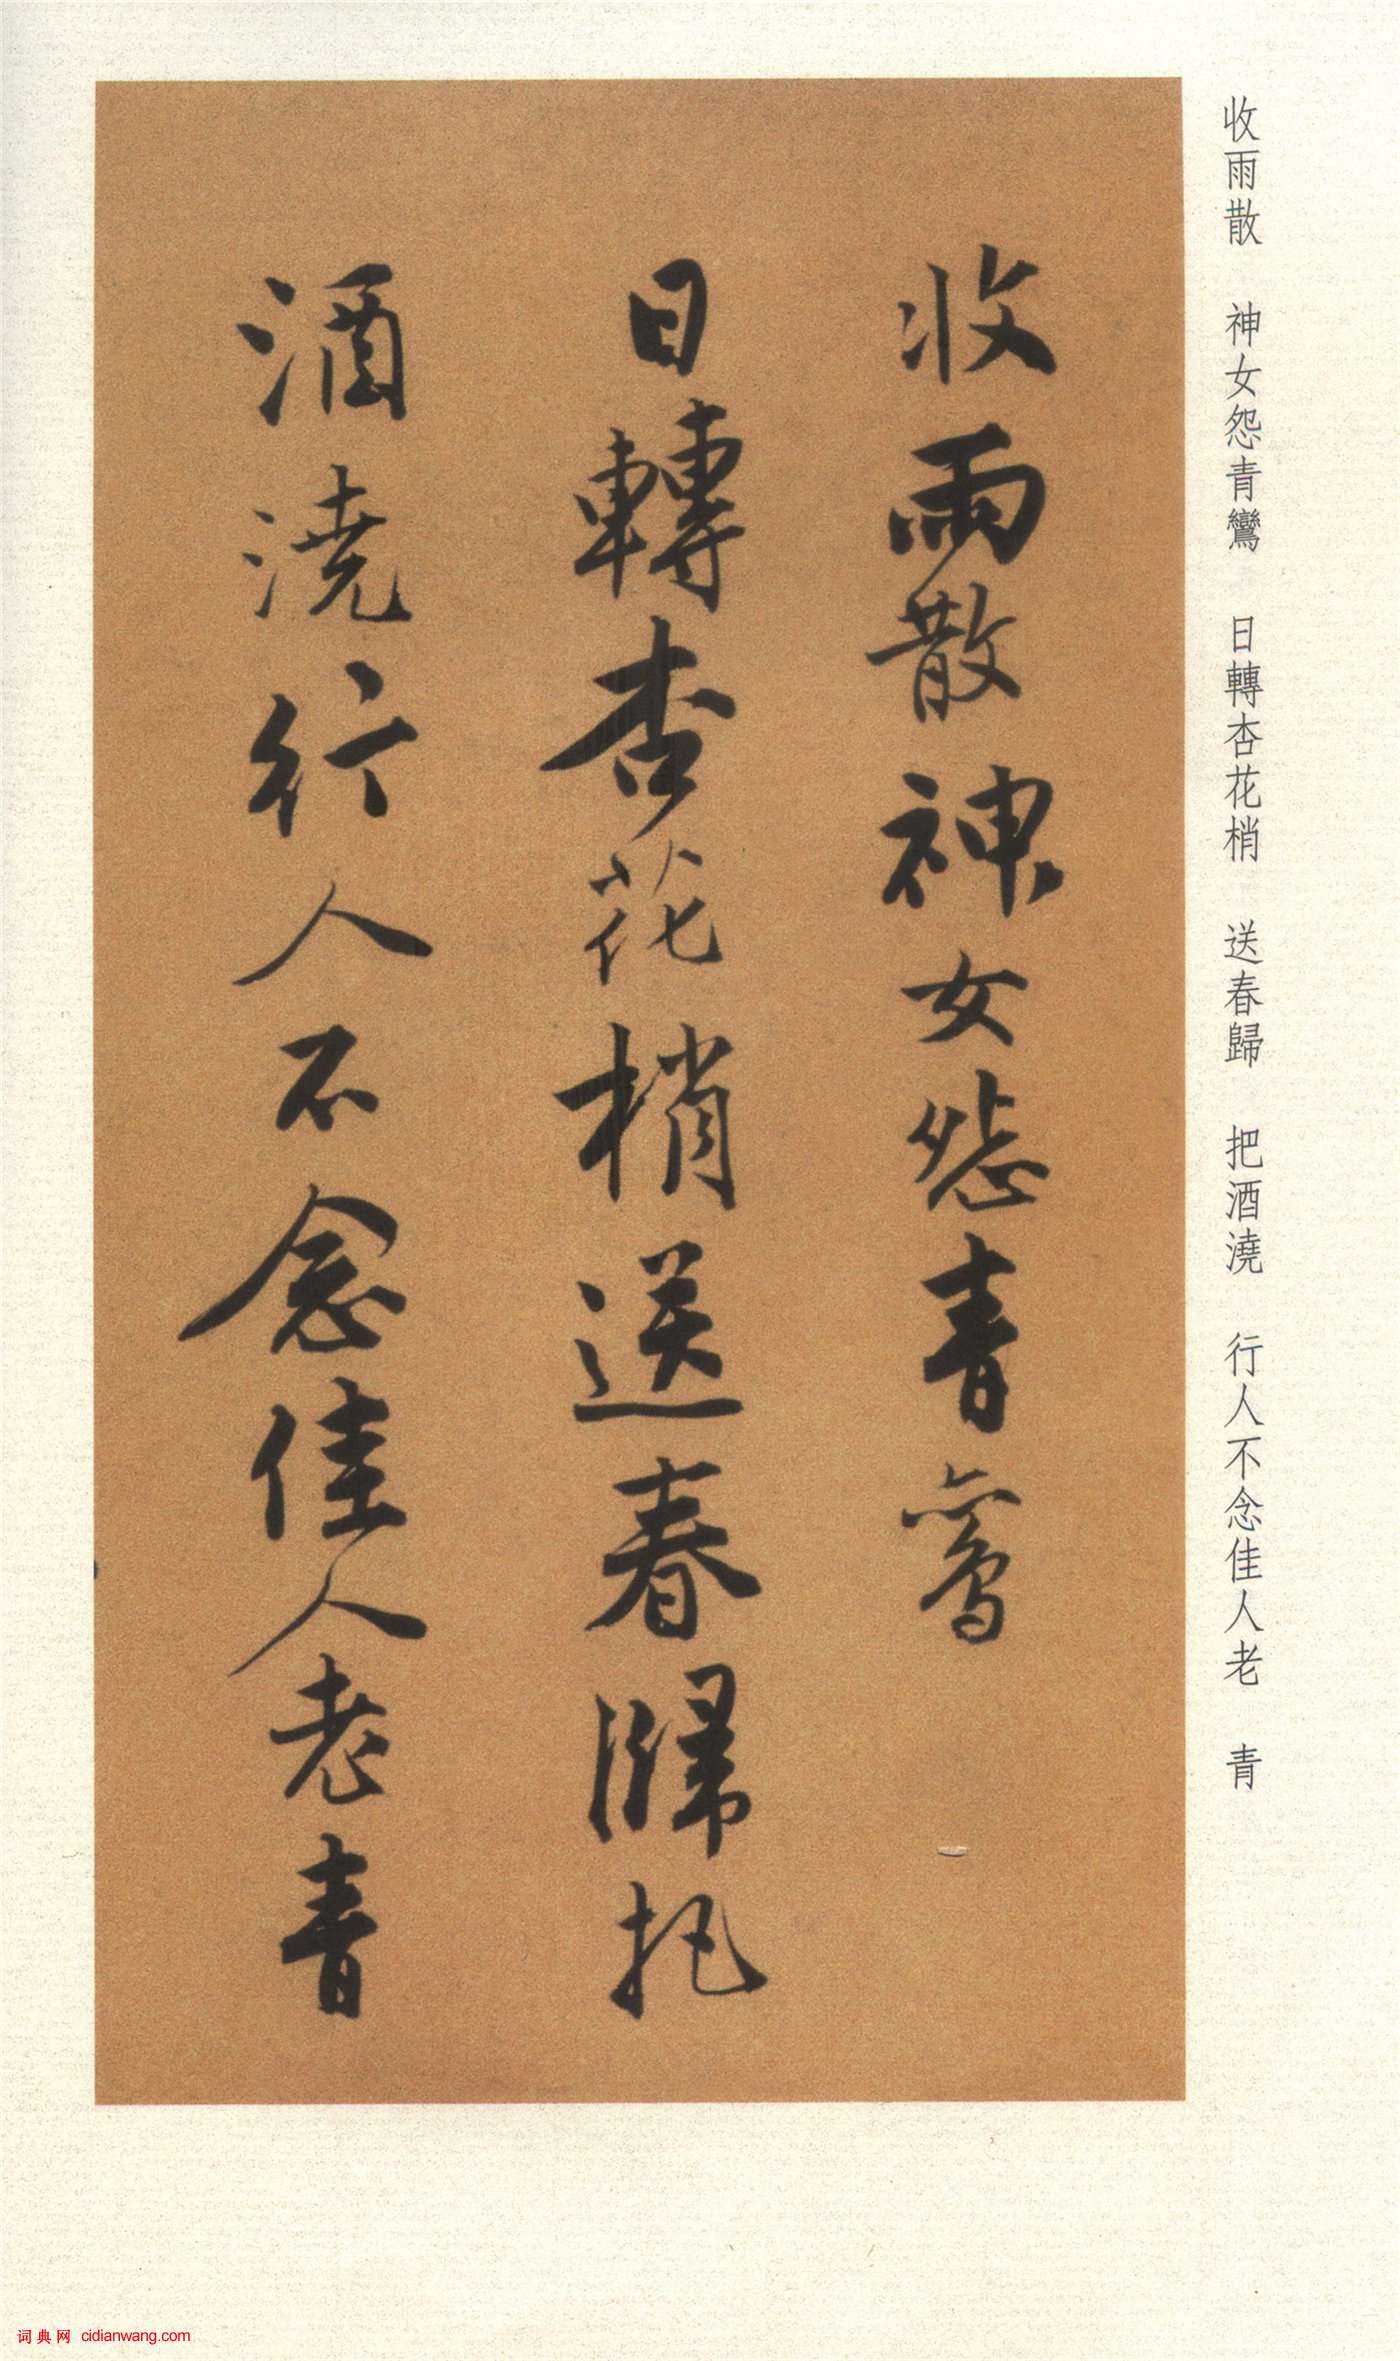 收雨散　神女怨青鸞　日轉杏花梢　送春歸　把酒澆　行人不念佳人老　青
收雨散神女怨青鸞
日轉杏花梢送春歸把
酒澆行人不念佳人老青
词典网 cidianwang.com